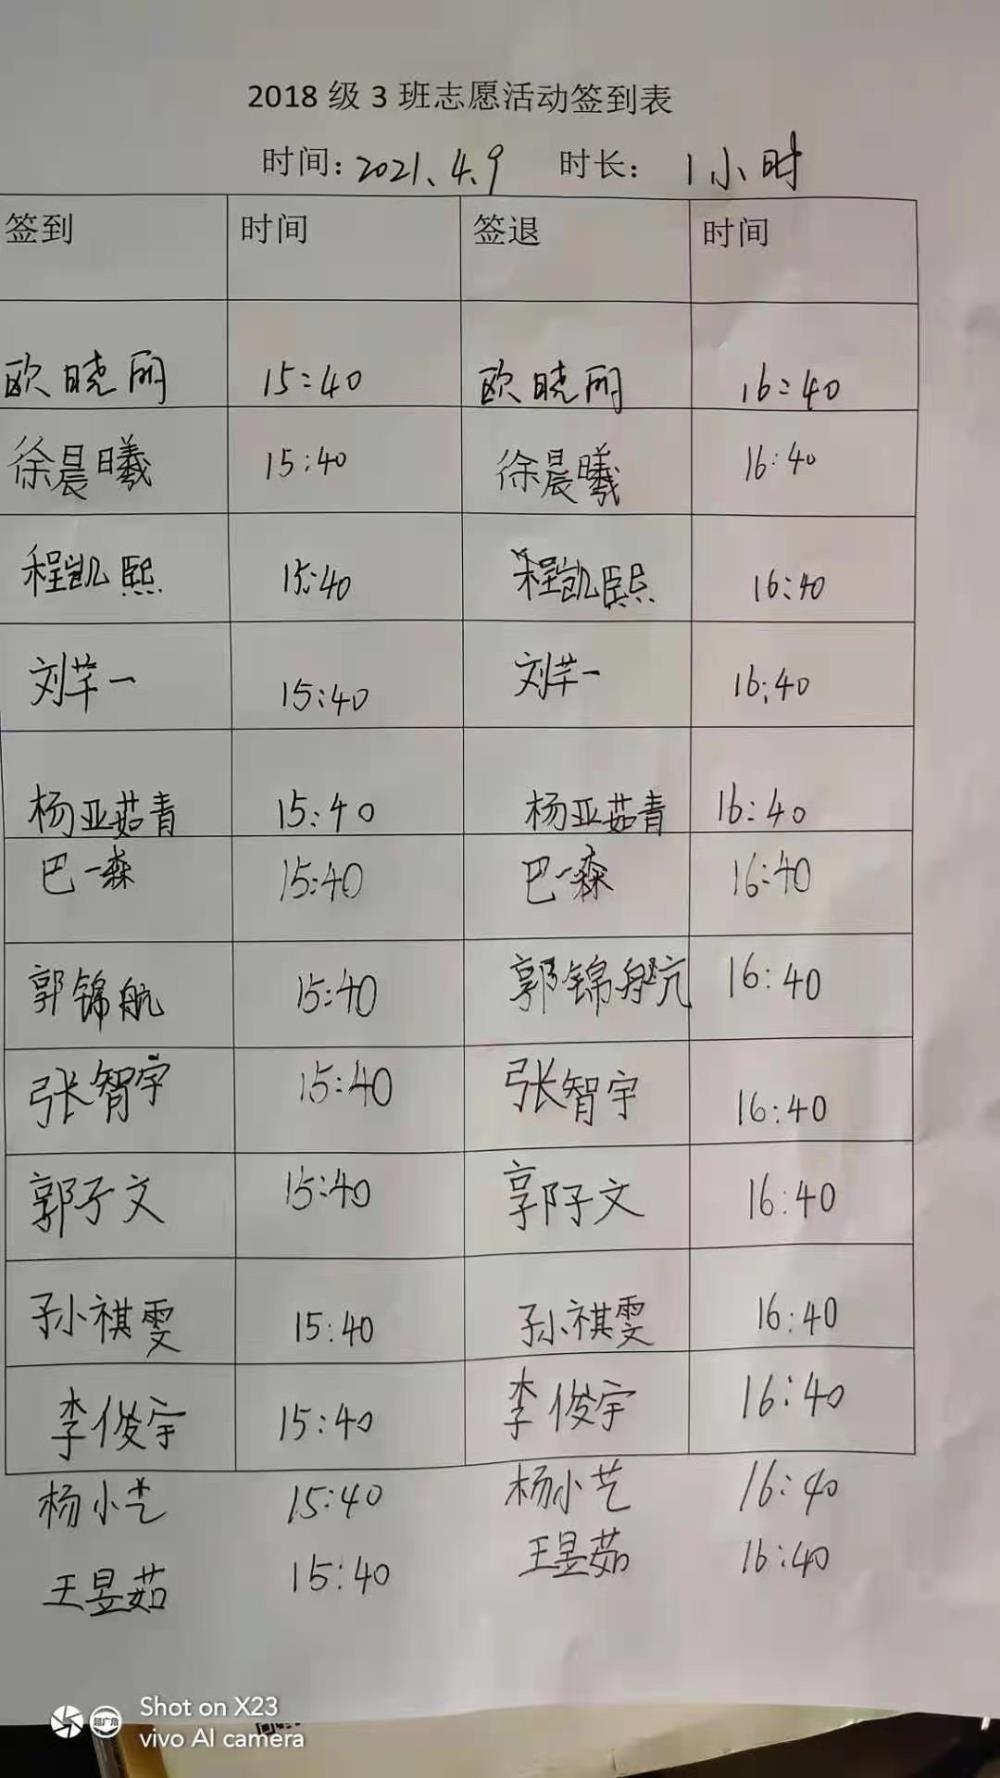 2018 级 3 班志愿活动签到表
时间: 2021.4.9 时长: 1小时
签到 时间 签退 时间
欧晓丽 15:40 欧晓丽 16:40
徐晨曦 15:40 徐晨曦 16:40
程凯熙 15:40 程凯熙 16:40
刘芊一 15:40 刘芊一 16:40
杨亚茹青 15:40 杨亚茹青 16:40
巴一森 15:40 巴一森 16:40
郭锦航 15:40 郭锦航 16:40
张智宇 15:40 张智宇 16:40
郭子文 15:40 郭子文 16:40
孙祺雯 15:40 孙祺雯 16:40
李俊宇 15:40 李俊宇 16:40
杨小艺 15:40 杨小艺 16:40
王昱茹 15:40 王昱茹 16:40
超广角 Shot on X23
vivo AI camera